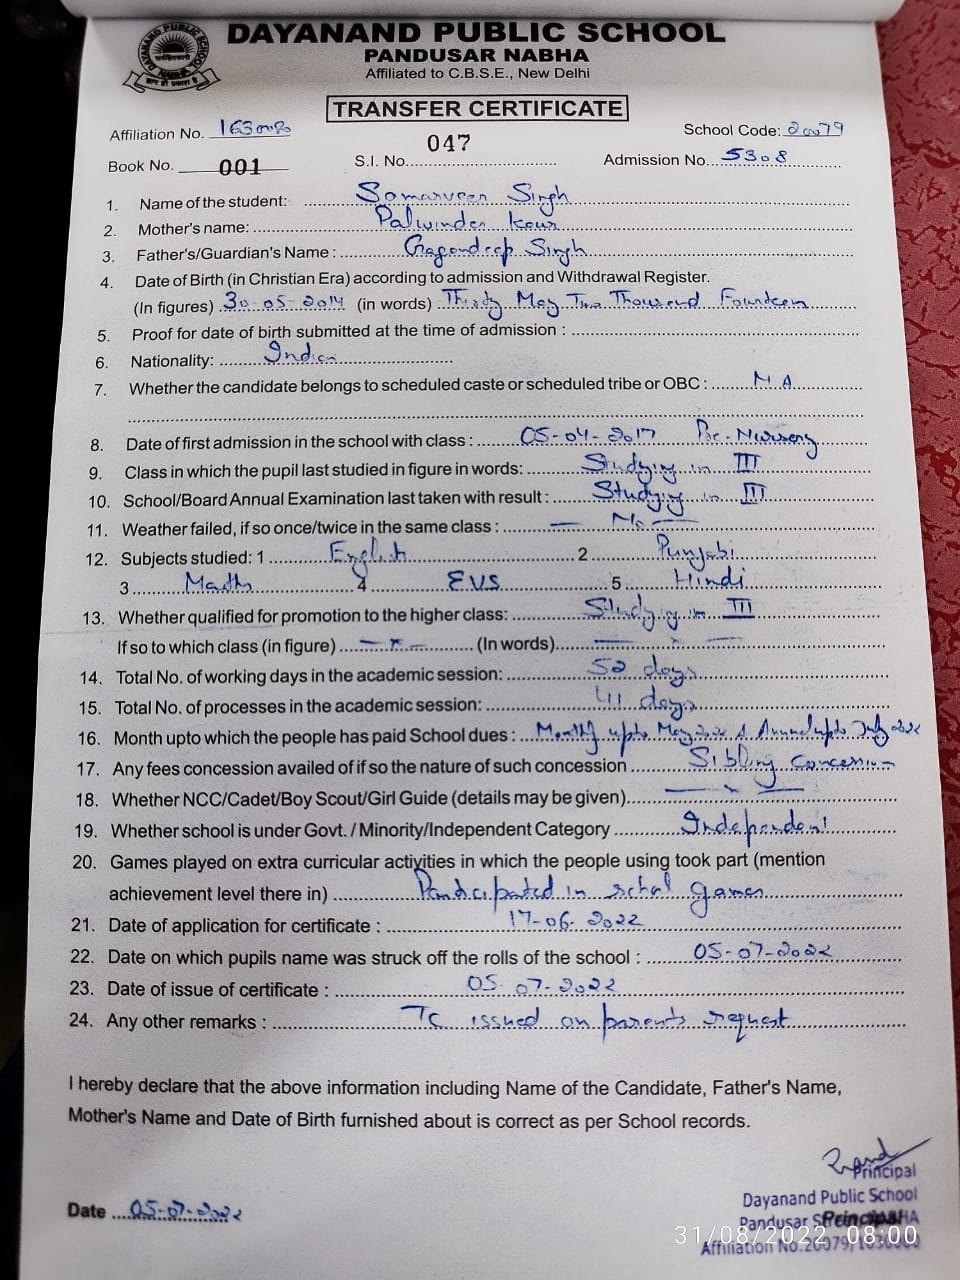 DAYANAND PUBLIC SCHOOL
PANDUSAR NABHA
Affiliated to C.B.S.E., New Delhi
DAYANAND PUBLIC SCHOOL
NABHA
TRANSFER CERTIFICATE
Affiliation No. School Code: 20079
Book No. 001 S.I. No. 047 Admission No. 5308
1. Name of the student: Samarveer Singh
2. Mother's name: Palwinder Kaur
3. Father's/Guardian's Name : Gagandeep Singh
4. Date of Birth (in Christian Era) according to admission and Withdrawal Register.
(In figures) 30-05-2014 (in words) Thirty May Two Thousand Fourteen
5. Proof for date of birth submitted at the time of admission :
6. Nationality: Indian
7. Whether the candidate belongs to scheduled caste or scheduled tribe or OBC : N.A.
8. Date of first admission in the school with class : 05-04-2017 Pre-Nursery
9. Class in which the pupil last studied in figure in words: Studying in III
10. School/Board Annual Examination last taken with result : Studying in III
11. Weather failed, if so once/twice in the same class : — No —
12. Subjects studied: 1 English 2 Punjabi
3 Maths 4 EVS 5. Hindi
13. Whether qualified for promotion to the higher class: Studying in III
If so to which class (in figure) (In words)
14. Total No. of working days in the academic session: 52 days
15. Total No. of processes in the academic session: 41 days
16. Month upto which the people has paid School dues : Monthly upto May 2022 & Annual upto July 2022
17. Any fees concession availed of if so the nature of such concession Sibling Concession
18. Whether NCC/Cadet/Boy Scout/Girl Guide (details may be given)
19. Whether school is under Govt. / Minority/Independent Category Independent
20. Games played on extra curricular activities in which the people using took part (mention
achievement level there in) Participated in school games
21. Date of application for certificate : 17-06-2022
22. Date on which pupils name was struck off the rolls of the school : 05-07-2022
23. Date of issue of certificate : 05-07-2022
24. Any other remarks : TC issued on parents request
I hereby declare that the above information including Name of the Candidate, Father's Name,
Mother's Name and Date of Birth furnished about is correct as per School records.
Principal
Dayanand Public School
Date 05-07-2022
Pandusar Principal
31/08/2022 08:00
Affiliation No.20079/